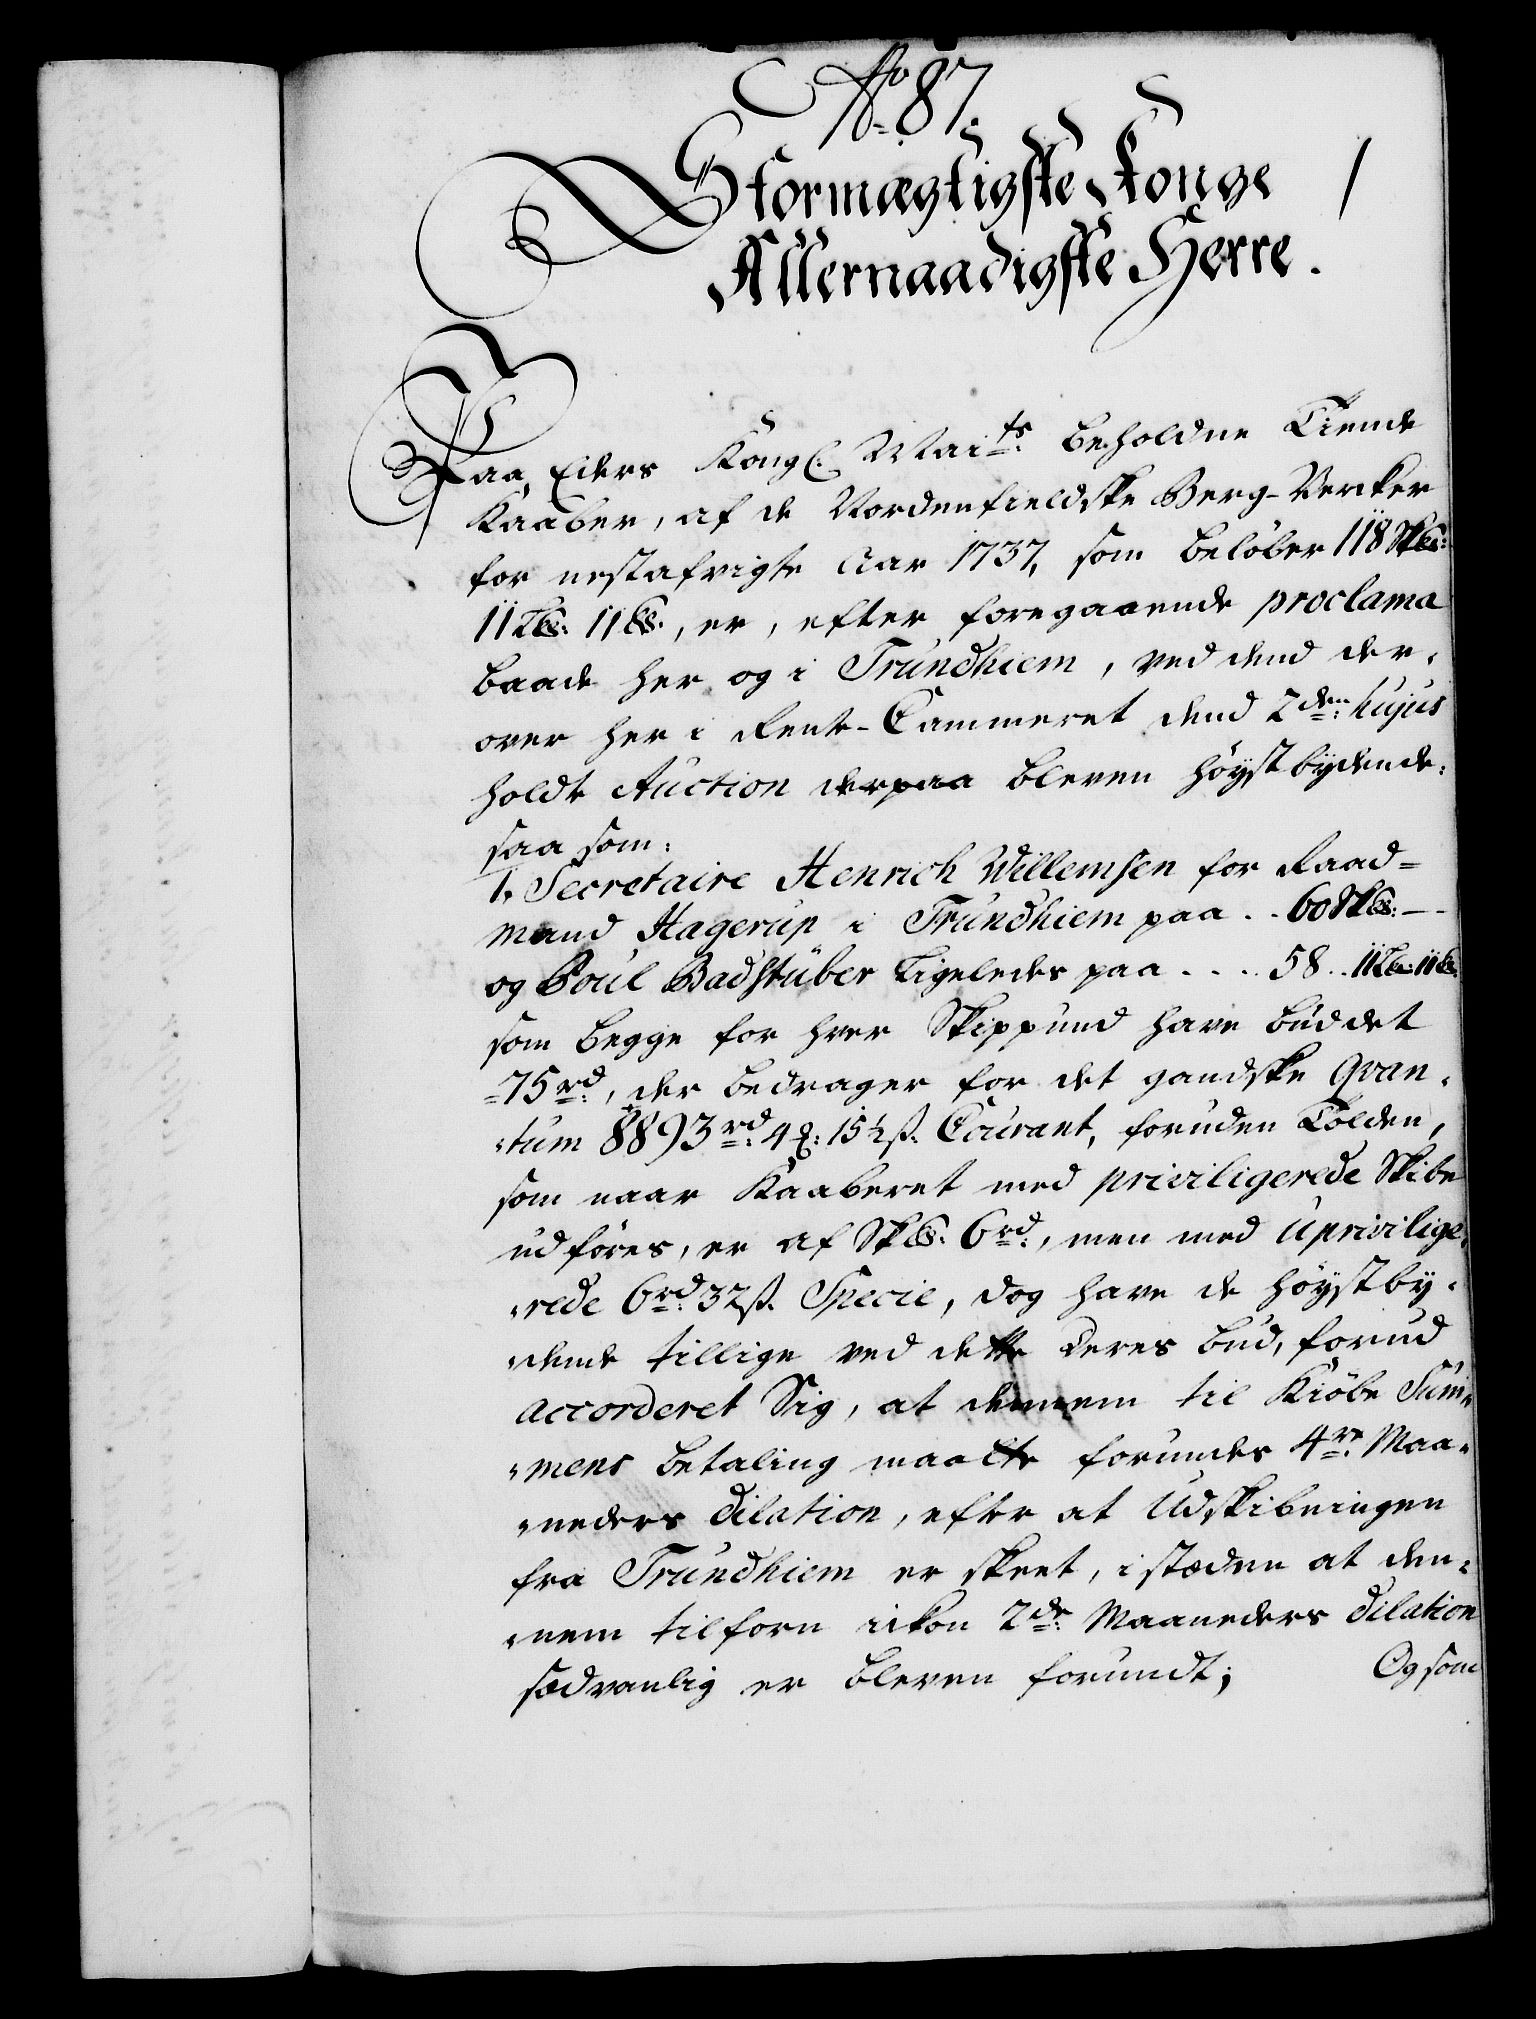 No 87.
Stormægtigste Konge
Allernaadigste Herre.
Paa Eders Kongl. Maits. beholdne Tiende
Kaaber, af de Nordenfieldske Berg-Vercker
for nestafvigte Aar 1737, som beløber 118 Sk℔:
11 L℔: 11 ℔., er, efter foregaaende proclama
baade her og i Trundhiem, ved dend der-
over her i Rente-Cammeret dend 2den: hujus
holdte Auction derpaa bleven høystbydende:
saa som:
1. Secretaire Henrich Willemsen for Raad-
mand Hagerup i Trundhiem paa .. 60 Sk℔: --
og Poul Badstüber ligeledes paa .... 58 .. 11 L℔: 11 ℔.
som begge for hver Skippund have buddet
-75 rd:, der bedrager for det gandske Qvan-
-tum 8893 rd: 4 ℥: 15½ ß. Courant, foruden Tolden,
som naar Kaaberet med priviligerede Skibe
udføres, er af Sk℔. 6 rd:, men med Uprivilige-
-rede 6 rd: 32 ß. Specie, dog have de høystby-
-dende tillige ved dette deres bud, forud
accorderet Sig, at dennem til Kiøbe Sum-
-mens betaling maatte forundes 4re: Maa-
-neders dilation, efter at Udskibningen
fra Trundhiem er skeet, i stæden at den-
-nem tilforn ickon 2de: Maaneders dilation
sædvanlig er bleven forundt;
Og som